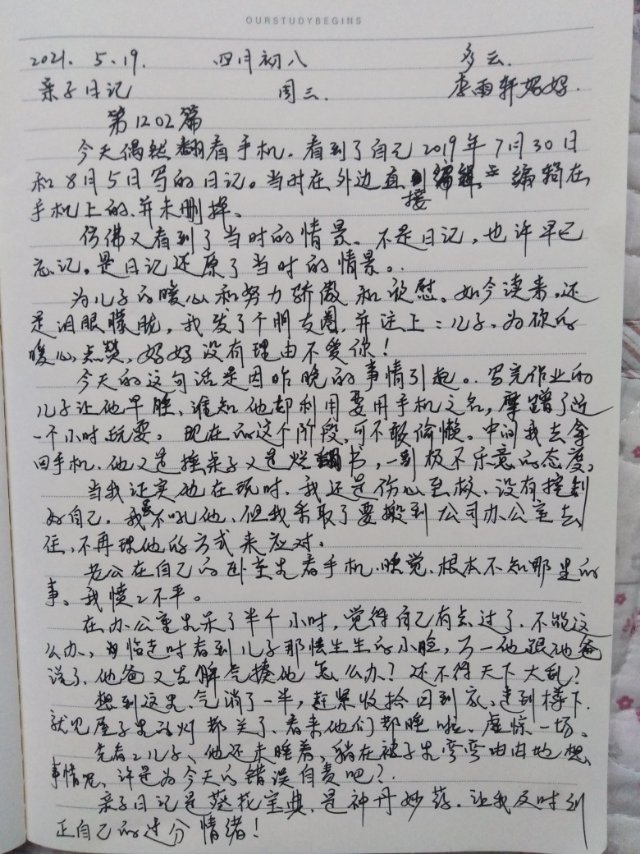 OURSTUDYBEGINS
2021. 5.19. 四月初八 多云.
亲子日记 周三. 李雨轩妈妈.
第1202篇
今天偶然翻看手机. 看到了自己2019年7月30日
和8月5日写的日记. 当时在外边直接编辑在
手机上的. 并未删掉.
仿佛又看到了当时的情景. 不是日记, 也许早已
忘记. 是日记还原了当时的情景.
为儿子的暖心和努力骄傲和欣慰. 如今读来, 还
是泪眼朦胧, 我发了个朋友圈, 并注上: 儿子, 为你的
暖心点赞, 妈妈没有理由不爱你!
今天的这句话是因昨晚的事情引起. 写完作业的
儿子让他早睡, 谁知他却利用要用手机之名, 摩蹭了近
一个小时玩耍. 现在的这个阶段, 可不敢偷懒. 中间我去拿
回手机, 他又是摔桌子又是烂书, 一副极不乐意的态度.
当我证实他在玩时, 我还是伤心至极, 没有控制
好自己. 我不吼他, 但我采取了要搬到公司办公室去
住, 不再理他的方式来应对.
老公在自己的卧室里看手机. 睡觉. 根本不知那里的
事. 我愤愤不平.
在办公室里呆了半个小时, 觉得自己有点过了. 不能这
么办, 临走时看到儿子那怯生生的小脸, 万一他跟他爸
说了, 他爸又去解气揍他怎么办? 还不得天下大乱?
想到这里, 气消了一半, 赶紧收拾回到家, 走到楼下.
就见屋子里的灯都关了. 看来他们都睡啦. 虚惊一场.
先看看儿子, 他还未睡着, 躺在被子里弯弯曲曲地想
事情呢, 许是为今天的错误自责吧?
亲子日记是葵花宝典, 是神丹妙药. 让我及时纠
正自己的过分情绪!